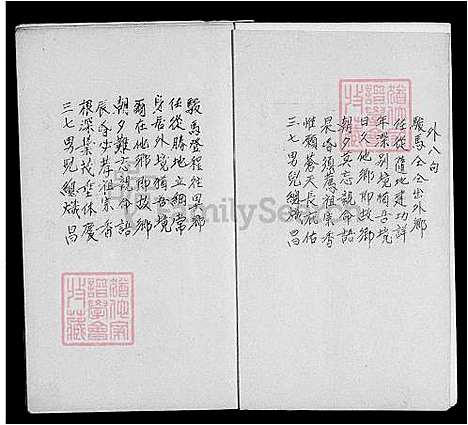 外八句
駿馬仝仝出外鄉
任從隨地建功詳
年深別境猶吾境
日久他鄉即故鄉
朝夕莫忘親命語
晨昏須薦祖宗香
惟願蒼天長福佑
三七男兒總熾昌
駿馬登程往異鄉
任從勝地立綱常
身居外境猶吾境
爾在他鄉即故鄉
朝夕難忘親命語
辰昏出孝祖宗香
根深葉茂垂休慶
三七男兒總熾昌
FamilySearch